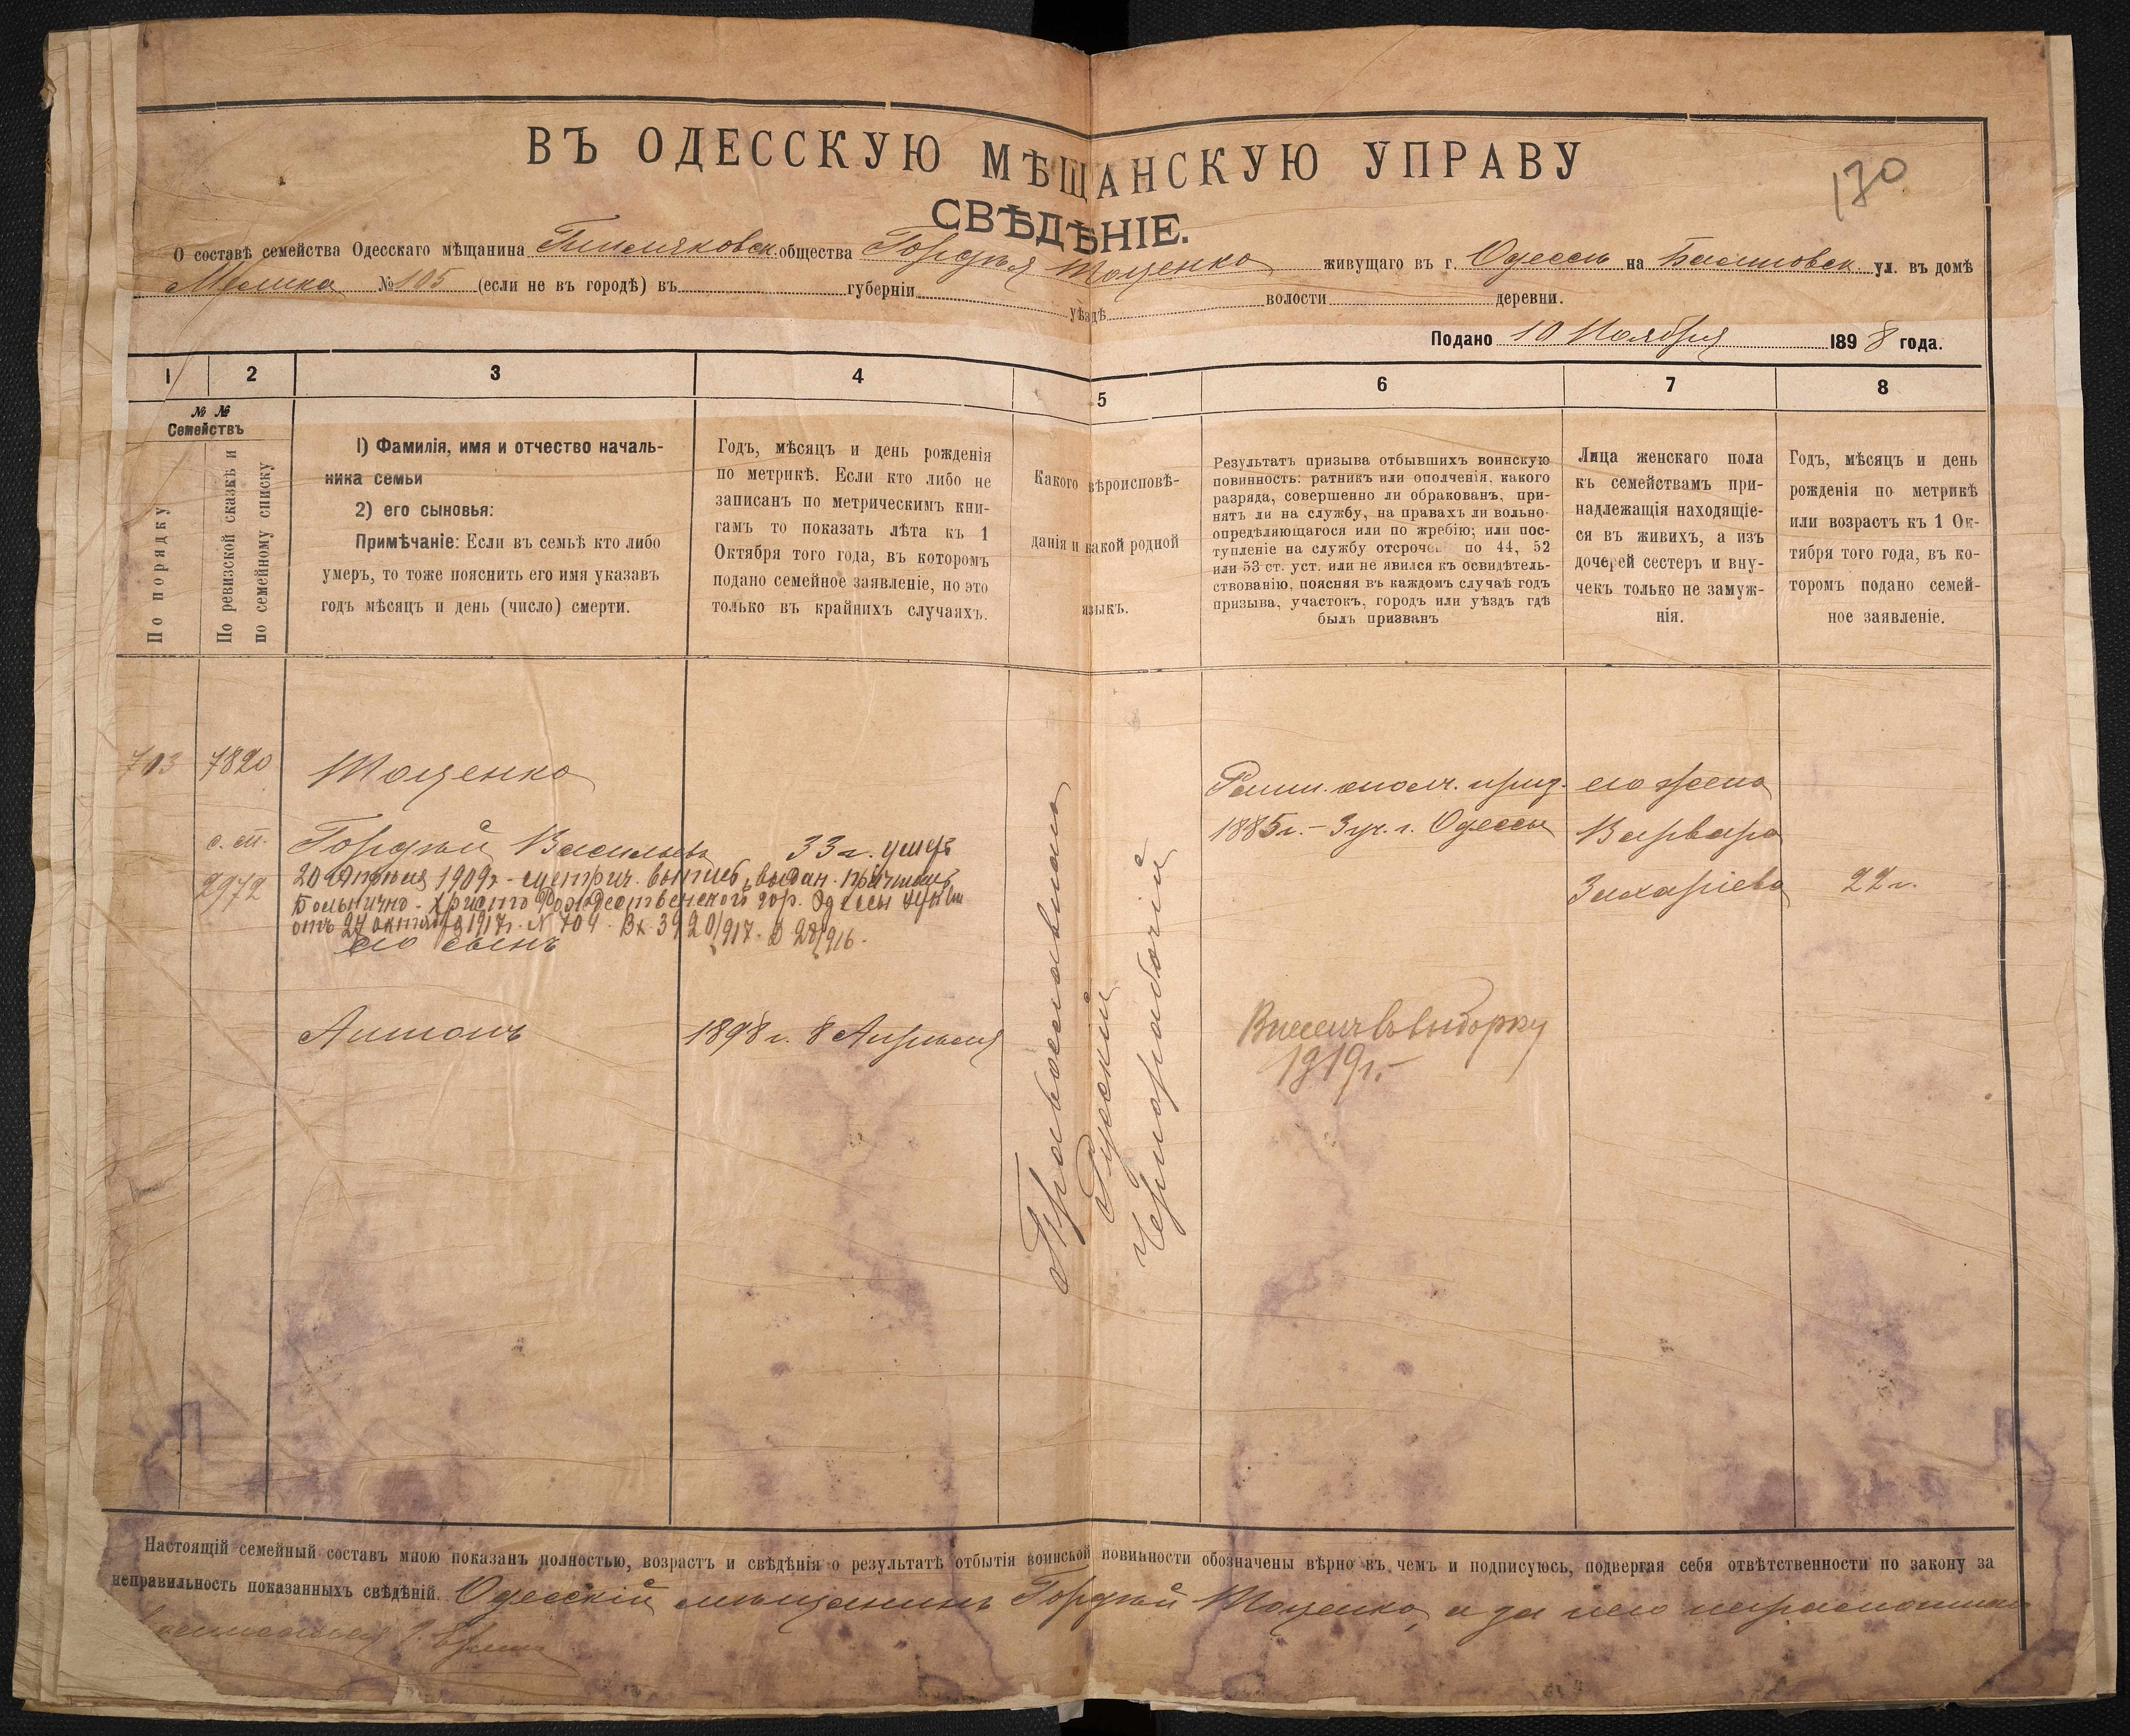 170
ВЪ ОДЕССКУЮ МѢЩАНСКУЮ УПРАВУ
СВѢДѢНІЕ.
О составѣ семейства Одесскаго мѣщанина общества Гордѣя Тоценко живущаго въ г. Одессѣ на ул. въ домѣ
№ 105 (если не въ городѣ) въ губерніи уѣздѣ волости деревни.
Подано 10 Ноября 1898 года.
1 2 3 4 5 6 7 8
№ №
Семействъ
По порядку
По ревизской сказкѣ и
по семейному списку
1) Фамилія, имя и отчество началь-
ника семьи
2) его сыновья:
Примѣчаніе: Если въ семьѣ кто либо
умеръ, то тоже пояснить его имя указавъ
годъ мѣсяцъ и день (число) смерти.
Годъ, мѣсяцъ и день рожденія
по метрикѣ. Если кто либо не
записанъ по метрическимъ кни-
гамъ то показать лѣта къ 1
Октября того года, въ которомъ
подано семейное заявленіе, но это
только въ крайнихъ случаяхъ.
Какого вѣроисповѣ-
данія и какой родной
языкъ.
Результатъ призыва отбывшихъ воинскую
повинность: ратникъ или ополченія, какого
разряда, совершенно ли обракованъ, при-
нятъ ли на службу, на правахъ ли вольно-
опредѣляющагося или по жребію; или пос-
тупленіе на службу отсрочено по 44, 52
или 53 ст. уст. или не явился къ освидѣтель-
ствованію, поясняя въ каждомъ случаѣ годъ
призыва, участокъ, городъ или уѣздъ гдѣ
былъ призванъ
Лица женскаго пола
къ семействамъ при-
надлежащія находящіе-
ся въ живихъ, а изъ
дочерей сестеръ и вну-
чекъ только не замуж-
нія.
Годъ, мѣсяцъ и день
рожденія по метрикѣ
или возрастъ къ 1 Ок-
тября того года, въ ко-
торомъ подано семей-
ное заявленіе.
703 7820 Тоценко
Ратн. ополч. приз. его жена
1885 г. – 3 уч. г. Одессы Варвара
Захаріева 22 г.
с. сп. Гордѣй Васильевъ 33 г. умеръ
2972 20 Апрѣля 1909 г. - метрич. выпись, выдан. причтомъ
Больнично-Христо Рождественского гор. Одессы церкви
отъ 27 октября 1917 г. № 704. Вх. 3920/917. 28/916.
его сынъ
Антонъ 1898 г. 8 Апрѣля
Православнаго
Русскій
Чернорабочій
Внесенъ въ выборку
1919 г. -
Настоящій семейный составъ мною показанъ полностью, возрастъ и свѣдѣнія о результатѣ отбытія воинской повинности обозначены вѣрно въ чемъ и подписуюсь, подвергая себя отвѣтственности по закону за
неправильность показанныхъ свѣдѣній. Одесскій мѣщанинъ Гордѣй Тоценко, а за него неграмотнаго